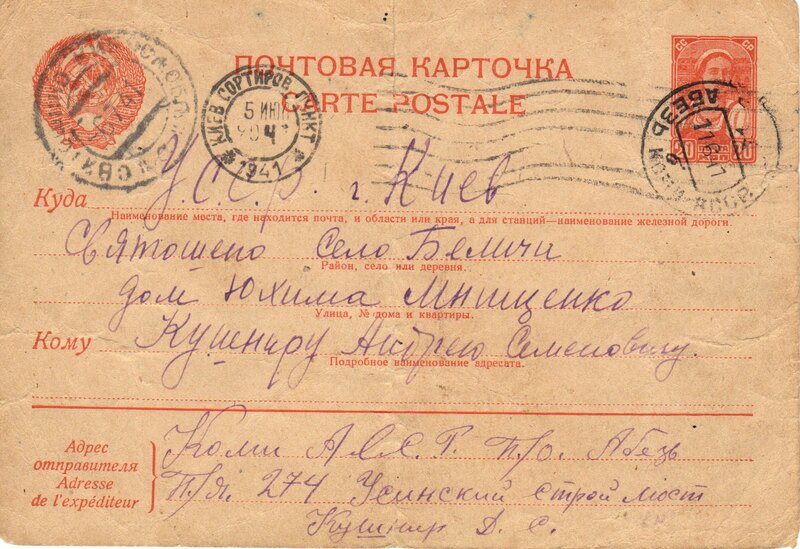 ПОЧТОВАЯ КАРТОЧКА
CARTE POSTALE
КИЕВ СОРТИРОВ. ПУНКТ
5 ИЮН
Ч
1941
СС СР
20 20
АБЕЗЬ КОМИ АССР
Куда У.С.С.Р. г. Киев
Наименование места, где находится почта, и области или края, а для станций—наименование железной дороги.
Святошено село Беличи
Район, село или деревня.
дом Юхима Мнищенко
Улица, № дома и квартиры.
Кому Кушниру Андрею Семеновичу.
Подробное наименование адресата.
Адрес отправителя
Adresse de l'expéditeur
Коми А.С.С.Р. п/о. Абезь
П/Я. 274 Усинский строймост
Кушнир Д. С.